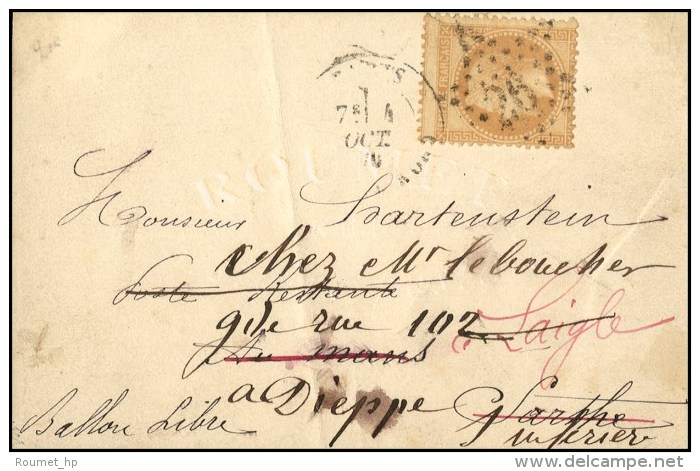 FRANÇAIS
26
PARIS
7E 4
OCT.
70
ROUMET
Monsieur Hartenstein
Chez Mr Leboucher
Poste Restante
gde rue 102 Laigle
Au mans
a Dièppe Sarthe
inferier
Ballon Libre
Roumet_hp
delcampe.net